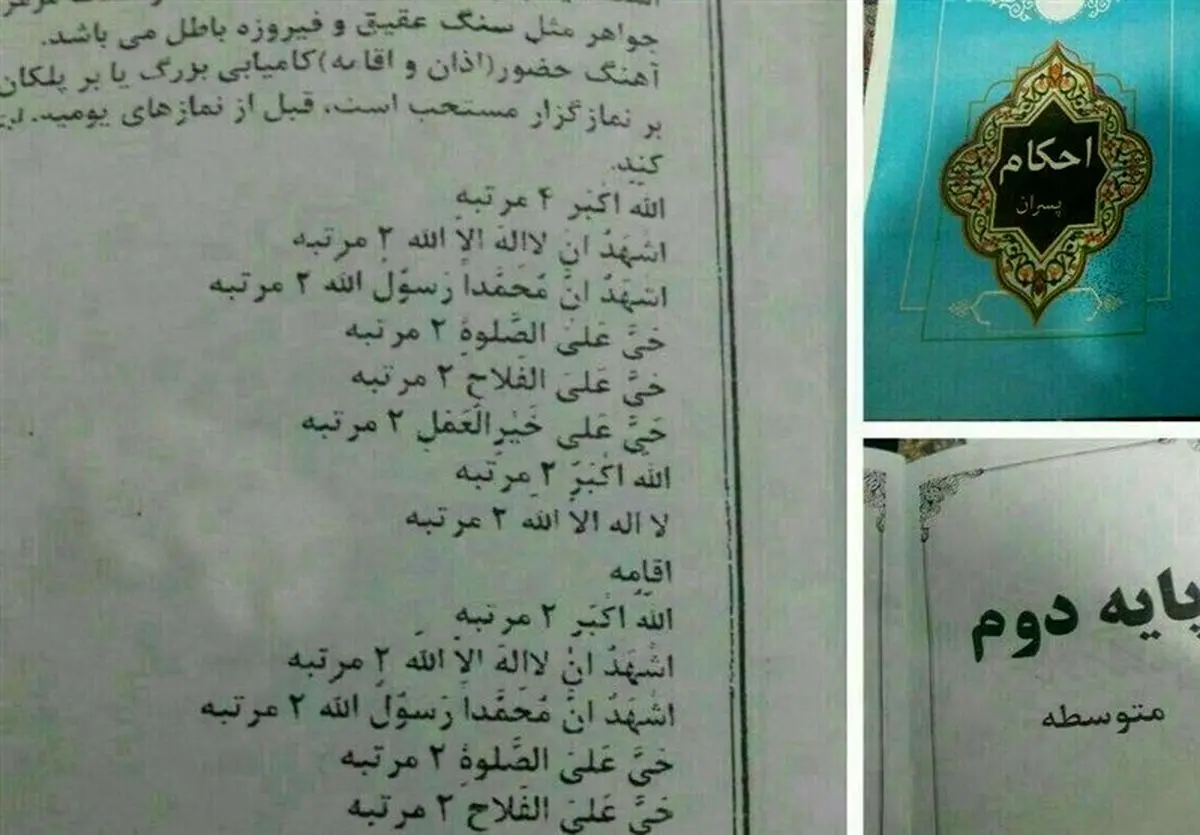 جواهر مثل سنگ عقیق و فیروزه باطل می باشد.
آهنگ حضور(اذان و اقامه)کامیابی بزرگ یا بر پلکان
بر نمازگزار مستحب است، قبل از نمازهای یومیه.
کند.
الله اَکْبَر ۴ مرتبه
اَشْهَدُ اَنْ لااِلهَ اِلاَّ الله ۲ مرتبه
اَشْهَدُ اَنَّ مُحَمَّداً رَسوُلُ الله ۲ مرتبه
حَیَّ عَلیَ الصَّلوةِ ۲ مرتبه
حَیَّ عَلیَ الفَلاحِ ۲ مرتبه
حَیَّ عَلی خَیْرِالْعَمَلِ ۲ مرتبه
الله اَکْبَرْ ۲ مرتبه
لا اله الا الله ۲ مرتبه
اقامه
الله اَکْبَر ۲ مرتبه
اَشْهَدُ اَنْ لااِلهَ اِلاَّ الله ۲ مرتبه
اَشْهَدُ اَنَّ مُحَمَّداً رَسوُلُ الله ۲ مرتبه
حَیَّ عَلیَ الصَّلوةِ ۲ مرتبه
حَیَّ عَلیَ الفَلاحِ ۲ مرتبه
احکام
پسران
پایه دوم
متوسطه